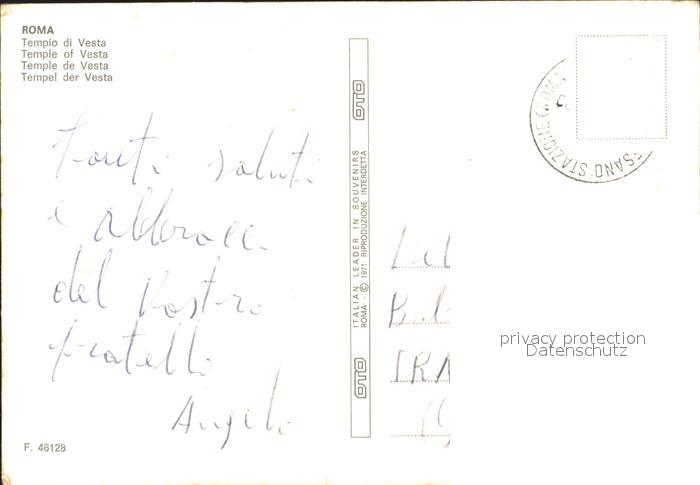 ROMA
Tempio di Vesta
Temple of Vesta
Temple de Vesta
Tempel der Vesta
Tanti saluti
e abbracci
del Vostro
fratello
Angelo
F. 46128
OTO
ITALIAN LEADER IN SOUVENIRS
ROMA - © 1971 RIPRODUZIONE INTERDETTA
OTO
ESANO STAZIONE (ROMA
privacy protection
Datenschutz